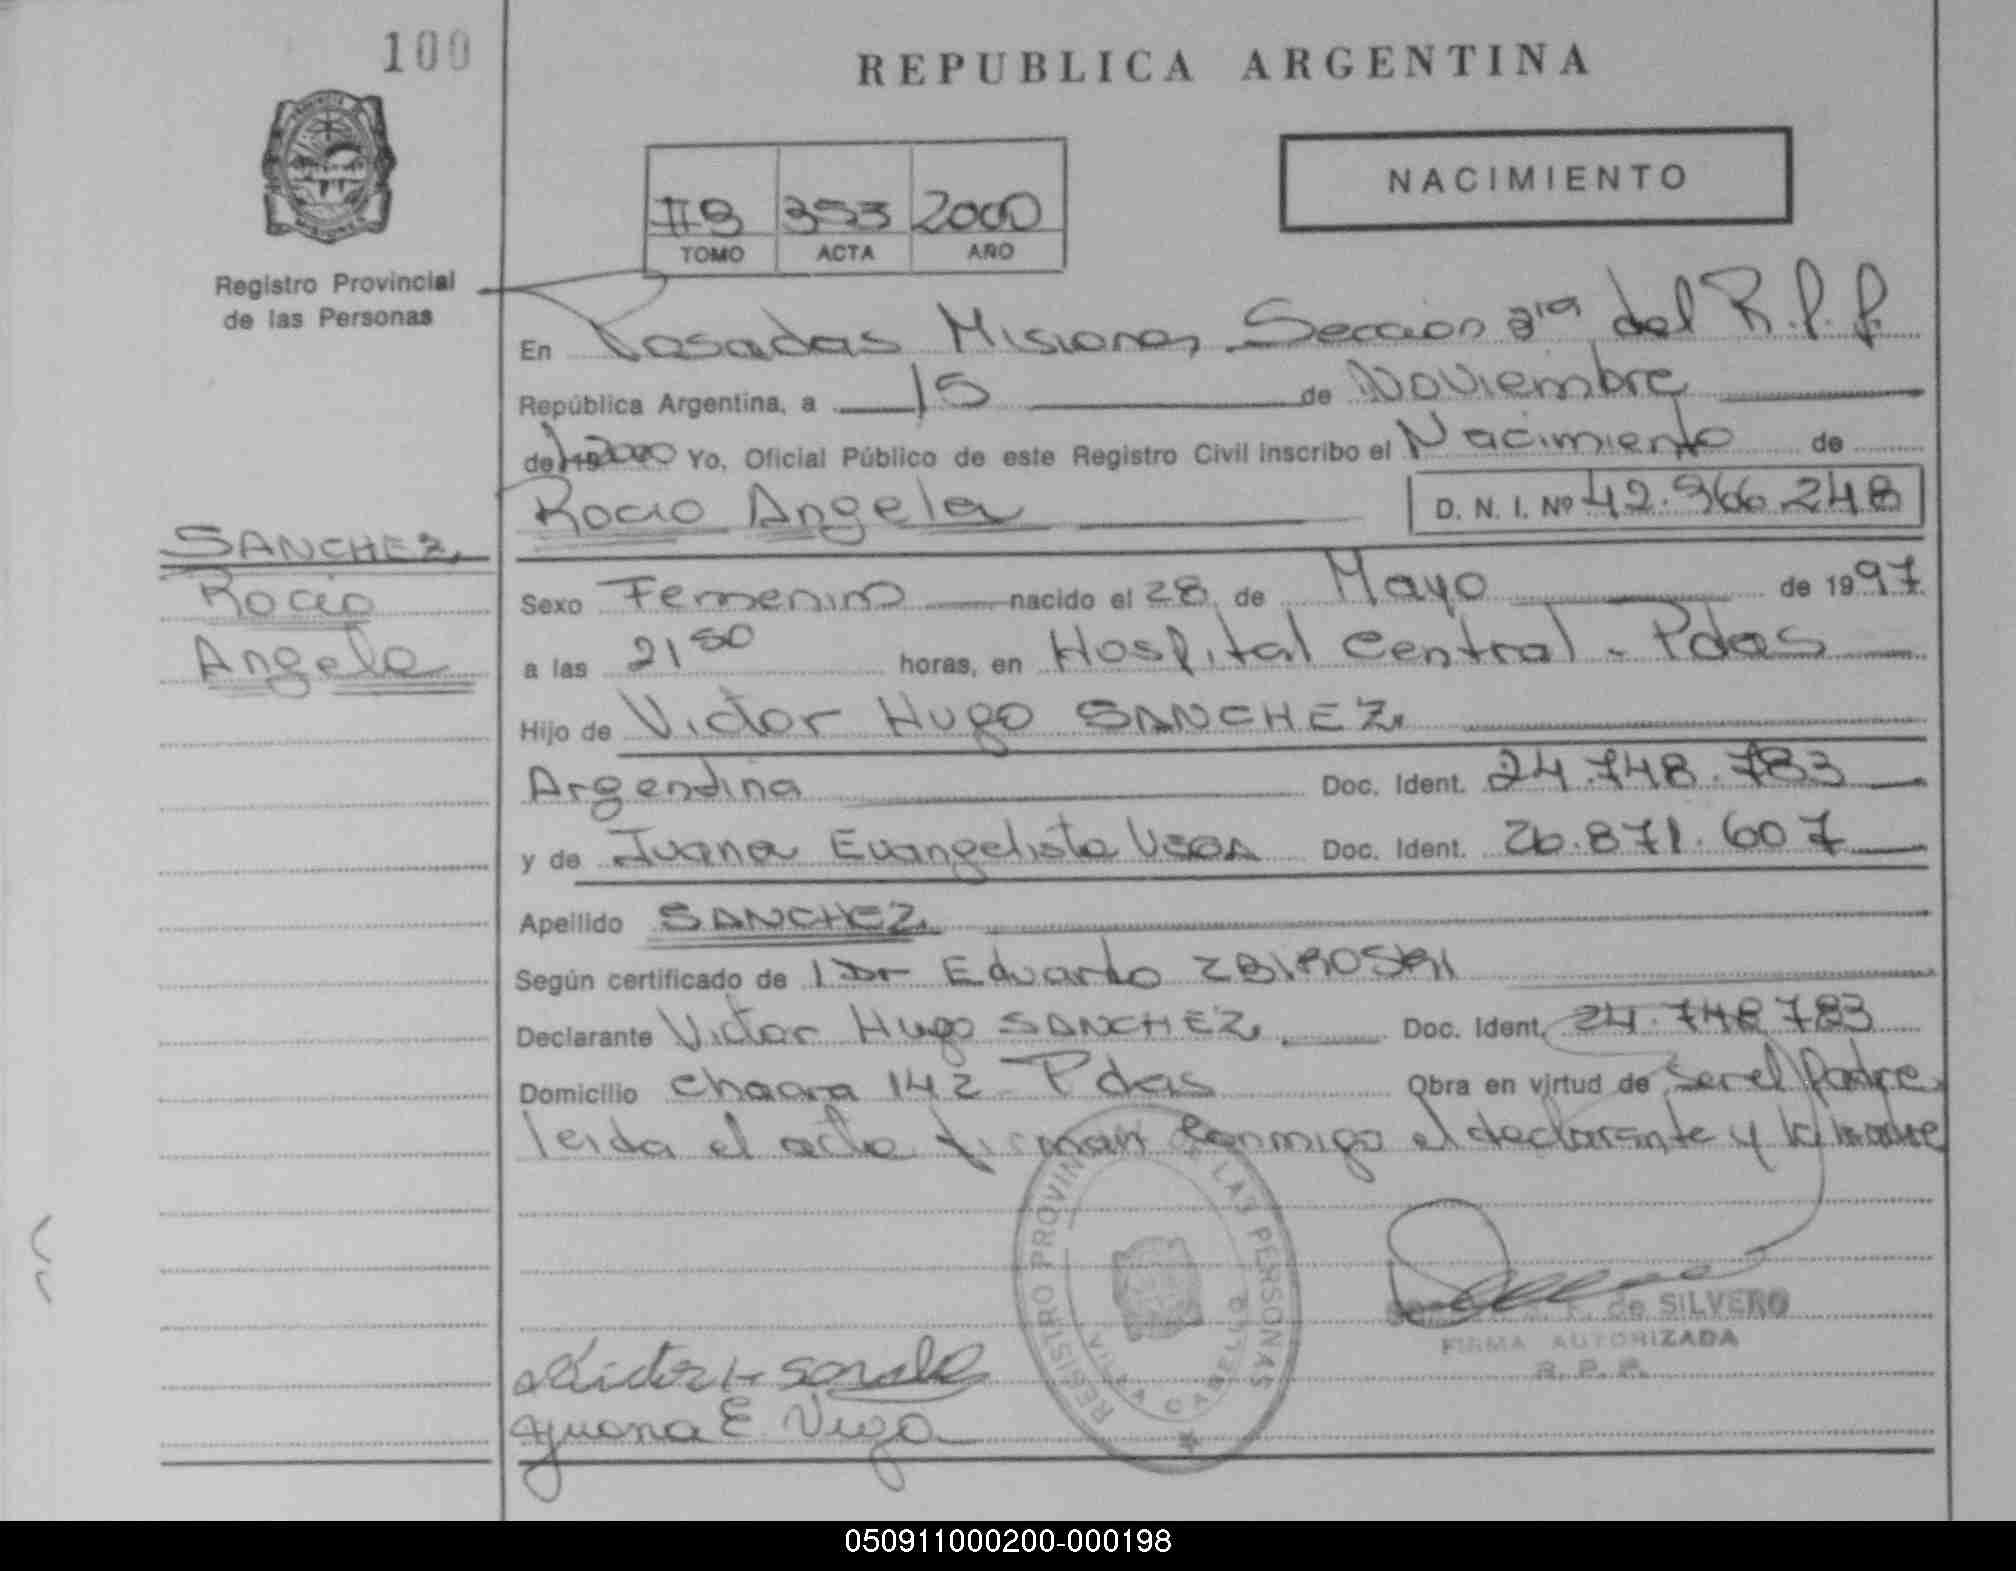 100
REPUBLICA ARGENTINA
NACIMIENTO
353 2000
TOMO ACTA AÑO
Registro Provincial
de las Personas
En Posadas Misiones Sección 3ra del R.P.P.
República Argentina, a 15 de Noviembre
de 19 2000 Yo, Oficial Público de este Registro Civil inscribo el Nacimiento de
Rocio Angela D. N. I. Nº 42.966.248
SANCHEZ
Rocio
Angela
Sexo Femenino nacido el 28 de Mayo de 1997
a las 21 50 horas, en Hospital Central - Pdas
Hijo de Victor Hugo SANCHEZ
Argentina Doc. Ident. 24.748.783
y de Juana Evangelista Doc. Ident. 26.871.607
Apellido SANCHEZ
Según certificado de Dr Eduardo
Declarante Victor Hugo SANCHEZ Doc. Ident. 24.748.783
Domicilio chacra 142 - Pdas Obra en virtud de ser el Padre
leida el acta firman conmigo el declarante y la madre
REGISTRO PROVINCIAL DE LAS PERSONAS
VILLA CABELLO
F. de SILVERO
FIRMA AUTORIZADA
R. P. P.
Victor H
Juana E.
050911000200-000198